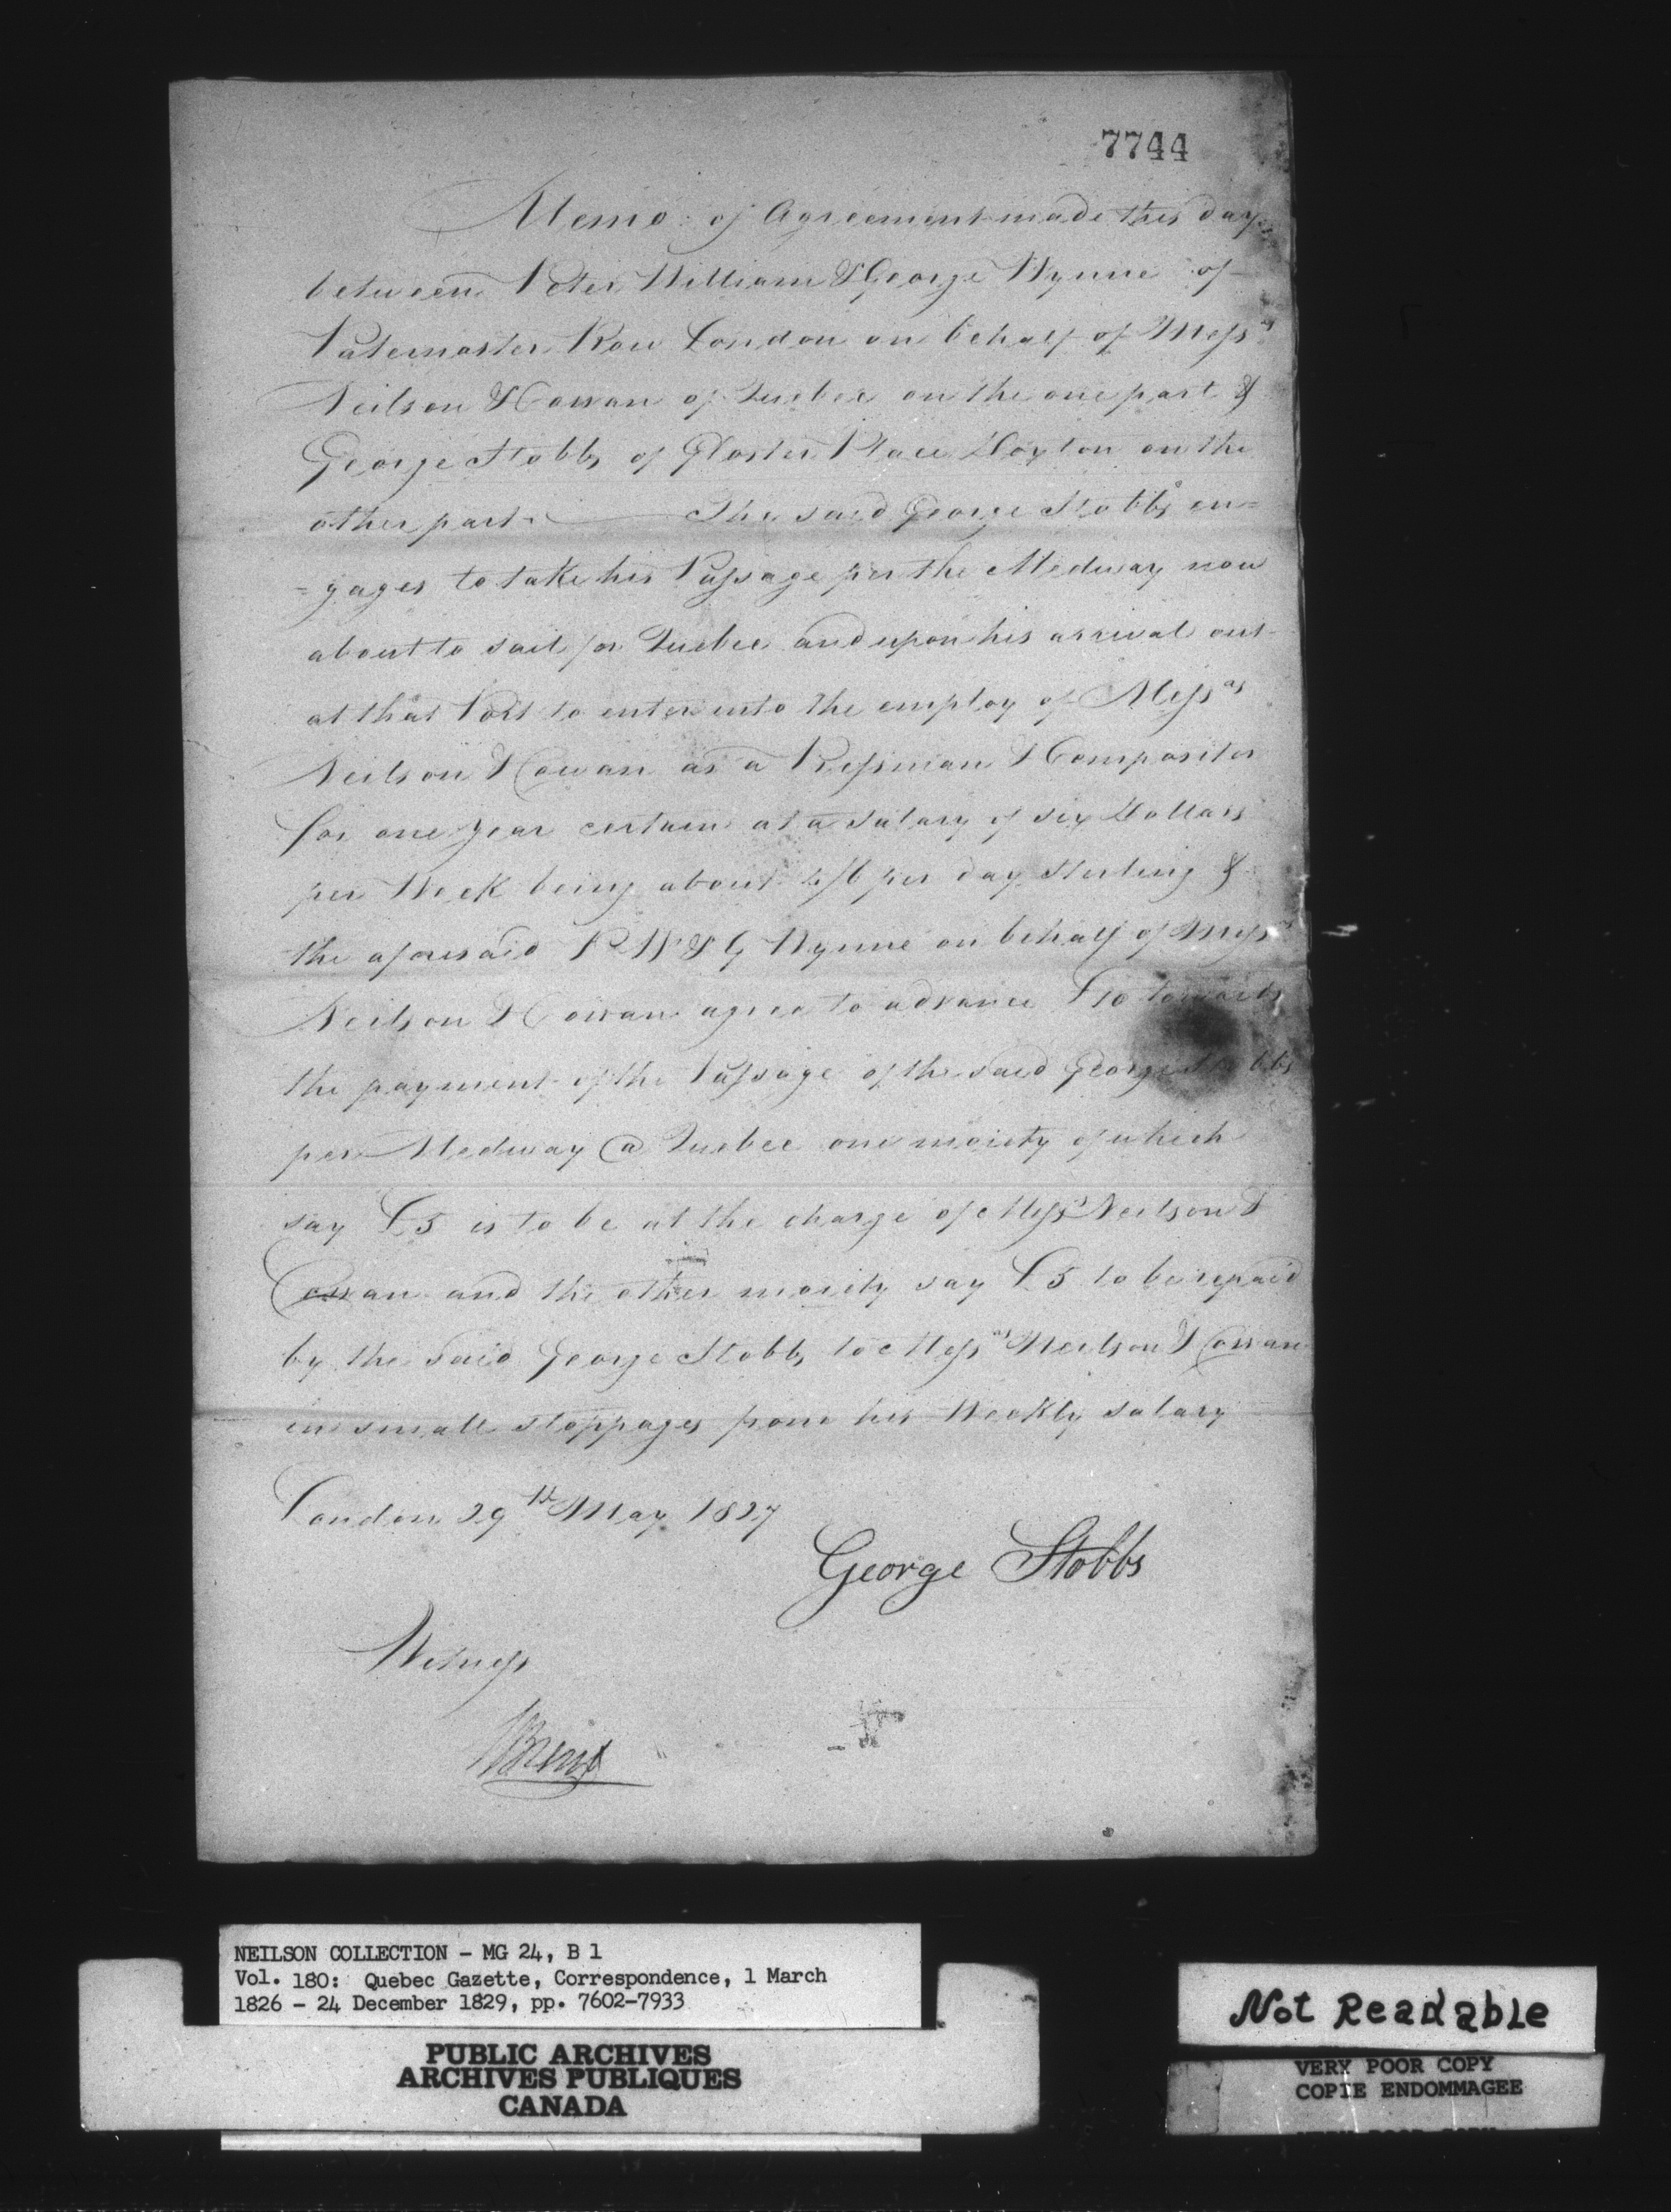 7744
Memo: of Agreement made this day
between Peter William & George Wynne of
Paternoster Row London on behalf of Messrs
Neilson & Cowan of Quebec on the one part &
George Stobbs of Gloster Place Hoxton on the
other part. The said George Stobbs en=
=gages to take his Passage per the Medway now
about to sail for Quebec and upon his arrival out
at that Port to enter into the employ of Messrs
Neilson & Cowan as a Pressman & Compositor
for one year certain at a salary of six Dollars
per Week being about 4/6 per day Sterling &
the aforesaid P W & G Wynne on behalf of Messrs
Neilson & Cowan agree to advance £10 towards
the payment of the Passage of the said George Stobbs
per Medway @ Quebec one moiety of which
say £5 is to be at the charge of Messrs Neilson &
Cowan and the other moiety say £5 to be repaid
by the said George Stobbs to Messrs Neilson & Cowan
in small stoppages from his Weekly salary
London 29th May 1827
George Stobbs
Witness
NEILSON COLLECTION - MG 24, B 1
Vol. 180: Quebec Gazette, Correspondence, 1 March
1826 - 24 December 1829, pp. 7602-7933
PUBLIC ARCHIVES
ARCHIVES PUBLIQUES
CANADA
Not Readable
VERY POOR COPY
COPIE ENDOMMAGEE